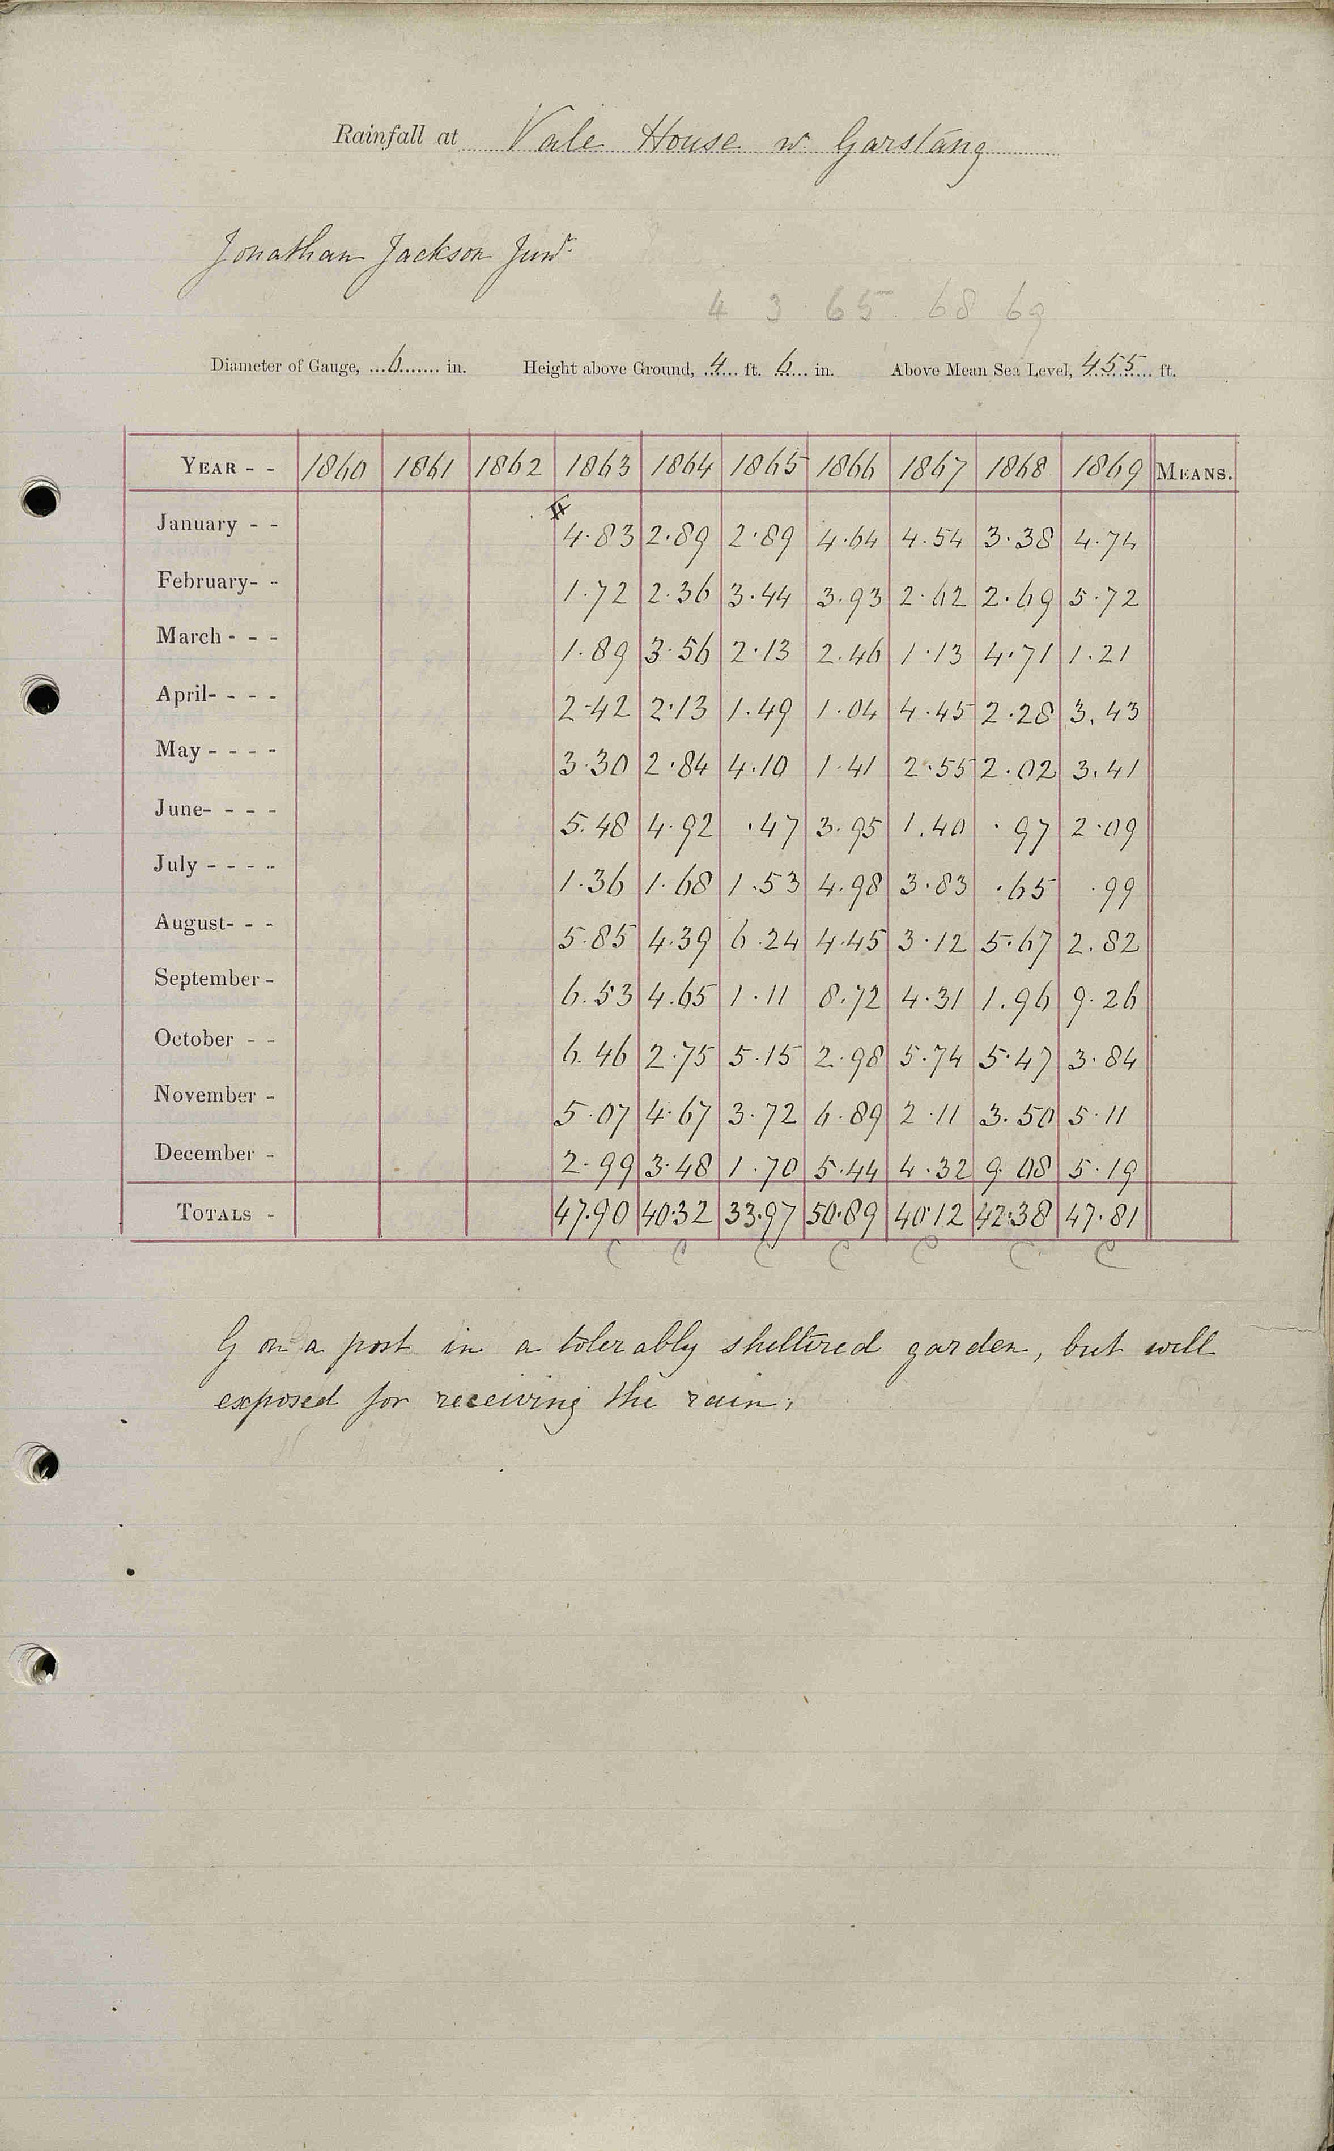 Rainfall at Vale House nr Garstang
Jonathan Jackson Junr.
4 3 65 68 69
Diameter of Gauge, 6 in. Height above Ground, 4 ft. 6 in. Above Mean Sea Level, 455 ft.
YEAR - - 1860 1861 1862 1863 1864 1865 1866 1867 1868 1869 MEANS.
January - - 4.83 2.89 2.89 4.64 4.54 3.38 4.74
February- - 1.72 2.36 3.44 3.93 2.62 2.69 5.72
March - - - 1.89 3.56 2.13 2.46 1.13 4.71 1.21
April- - - - 2.42 2.13 1.49 1.04 4.45 2.28 3.43
May - - - - 3.30 2.84 4.10 1.41 2.55 2.02 3.41
June- - - - 5.48 4.92 .47 3.95 1.40 .97 2.09
July - - - - 1.36 1.68 1.53 4.98 3.83 .65 .99
August- - - 5.85 4.39 6.24 4.45 3.12 5.67 2.82
September - 6.53 4.65 1.11 8.72 4.31 1.96 9.26
October - - 6.46 2.75 5.15 2.98 5.74 5.47 3.84
November - 5.07 4.67 3.72 6.89 2.11 3.50 5.11
December - 2.99 3.48 1.70 5.44 4.32 9.08 5.19
TOTALS - 47.90 40.32 33.97 50.89 40.12 42.38 47.81
C C C C C C C
G on a post in a tolerably sheltered garden, but well
exposed for receiving the rain.